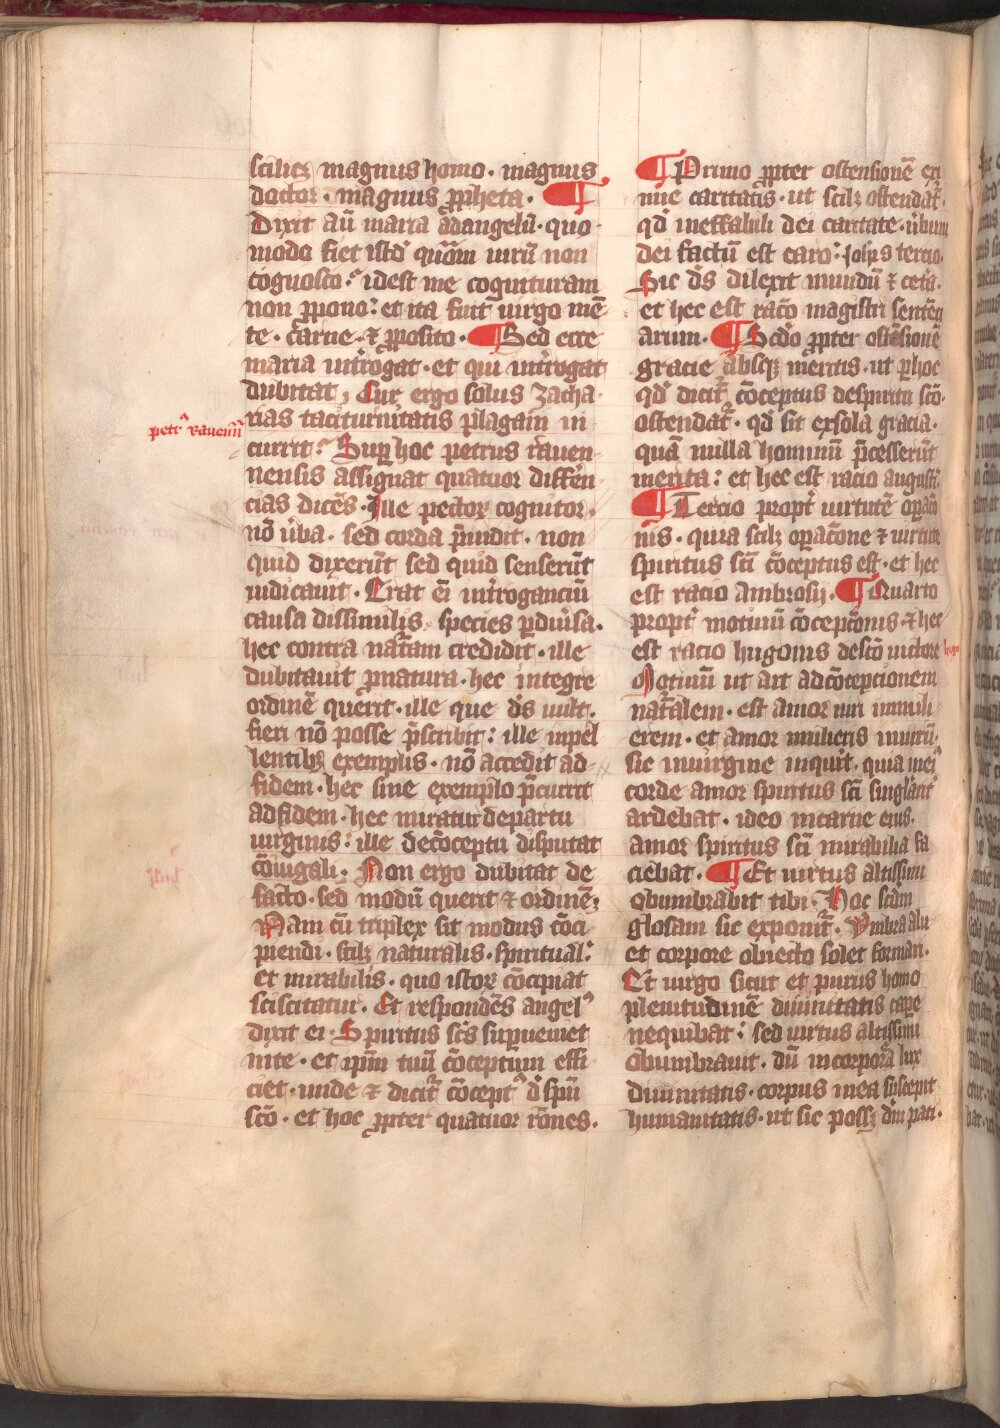 scilicz magnus homo · magnus
doctor · magnus ꝓpheta · ¶
Dixit aũ maria ad angelũ · quo
modo fiet istđ quõm uirũ non
cognosco ? idest me cognituram
non ꝓpono : et ita fuit uirgo mẽ
te · carne · ⁊ ꝓposito · ¶ Sed ecce
maria int̾rogat · et qui int̾rogat
dubitat , Cur ergo solus zacha
rias taciturnitatis plagam in
petrꝰ rauenñ
currit ? Suꝑ hoc petrus rauen
nensis assignat quatuor diffẽn
cias dicẽs · Ille pector cognitor ,
nõ u̾ba · sed corda p̃uidit · non
quid dixerũt sed quid senserũt
iudicauit · Erat eñ int̾roganciũ
causa dissimilis , species ꝑdiu̾sa .
hec contra nat̃am credidit · ille
dubitauit ꝓnatura · hec integre
ordinẽ querit · ille que đs uult ·
fieri nõ posse p̃scribit : ille inpel
lentibꝫ exemplis · nõ accedit ad-
fidem · hec sine exemplo p̃currit
ad fidem · hec miratur de partu
uirginis : ille de cõceptu disputat
cõiugali · Non ergo dubitat de
facto · sed modũ querit ⁊ ordinẽ ;
Nam cũ triplex sit modus cõci
piendi · scilꝫ naturalis · spiritual̾ :
et mirabilis · quo istor̾ cõcipiat
sciscitatur · Et respondẽs angelꝰ
dixit ei · Spiritus sc̃s suꝑueniet
in te · et ip̃m tuũ cõceptum effi
ciet · unde ⁊ dicit̃ cõceptꝰ đ spũ
sc̃o · et hoc ꝓpter quatuor rõnes .
¶ Primo ꝓpter ostensionẽ exi
mie caritatis · ut scilꝫ ostendat̃
qđ ineffabili dei caritate · u̾bum
dei factũ est caro : Joħis tercio .
Sic đs dilexit mundũ ⁊ cet̾a .
et hec est rac̃o magistri sentẽci
arum · ¶ Sc̃do ꝓpter ostẽsionẽ
gracie absqꝫ meritis · ut ꝑ hoc
qđ dicit̃ cõceptus de spiritu sc̃o
ostendat̃ · qđ sit ex sola gracia ·
quã nulla hominũ p̃cesserũt
merita : et hec est racio augustĩ
¶ Tercio propt̾ uirtutẽ oꝑac̃o
nis · quia scilꝫ oꝑac̃one ⁊ uirtute
spiritus sc̃i cõceptus est · et hec
est racio ambrosij · ¶ Quarto
propt̾ motiuũ cõcepc̃onis ⁊ hec
est racio hugonis de sc̃o uictore
hugo
Motiuũ ut ait ad cõcepcionem
nat̃alem · est amor uiri in muli
erem · et amor mulieris in uirũ ·
sic in uirgine inquit · quia in eiꝰ
corde amor spiritus sc̃i singl̾arit̾
ardebat · ideo in carne eius ·
amor spiritus sc̃i mirabilia fa
ciebat · ¶ Et uirtus altissimi
obumbrabit tibi · Hoc scđm
glosam sic exponit̃ · Vmbra a lu
et corpore obiecto solet forman ·
Et uirgo sicut et purus homo
plenitudinẽ diuinitatis cape
nequibat : sed uirtus altissimi
obumbrauit · dũ incorporã lux
diuinitatis · corpus in ea suscepit
humanitatis · ut sic possꝫ dm̃ pati .